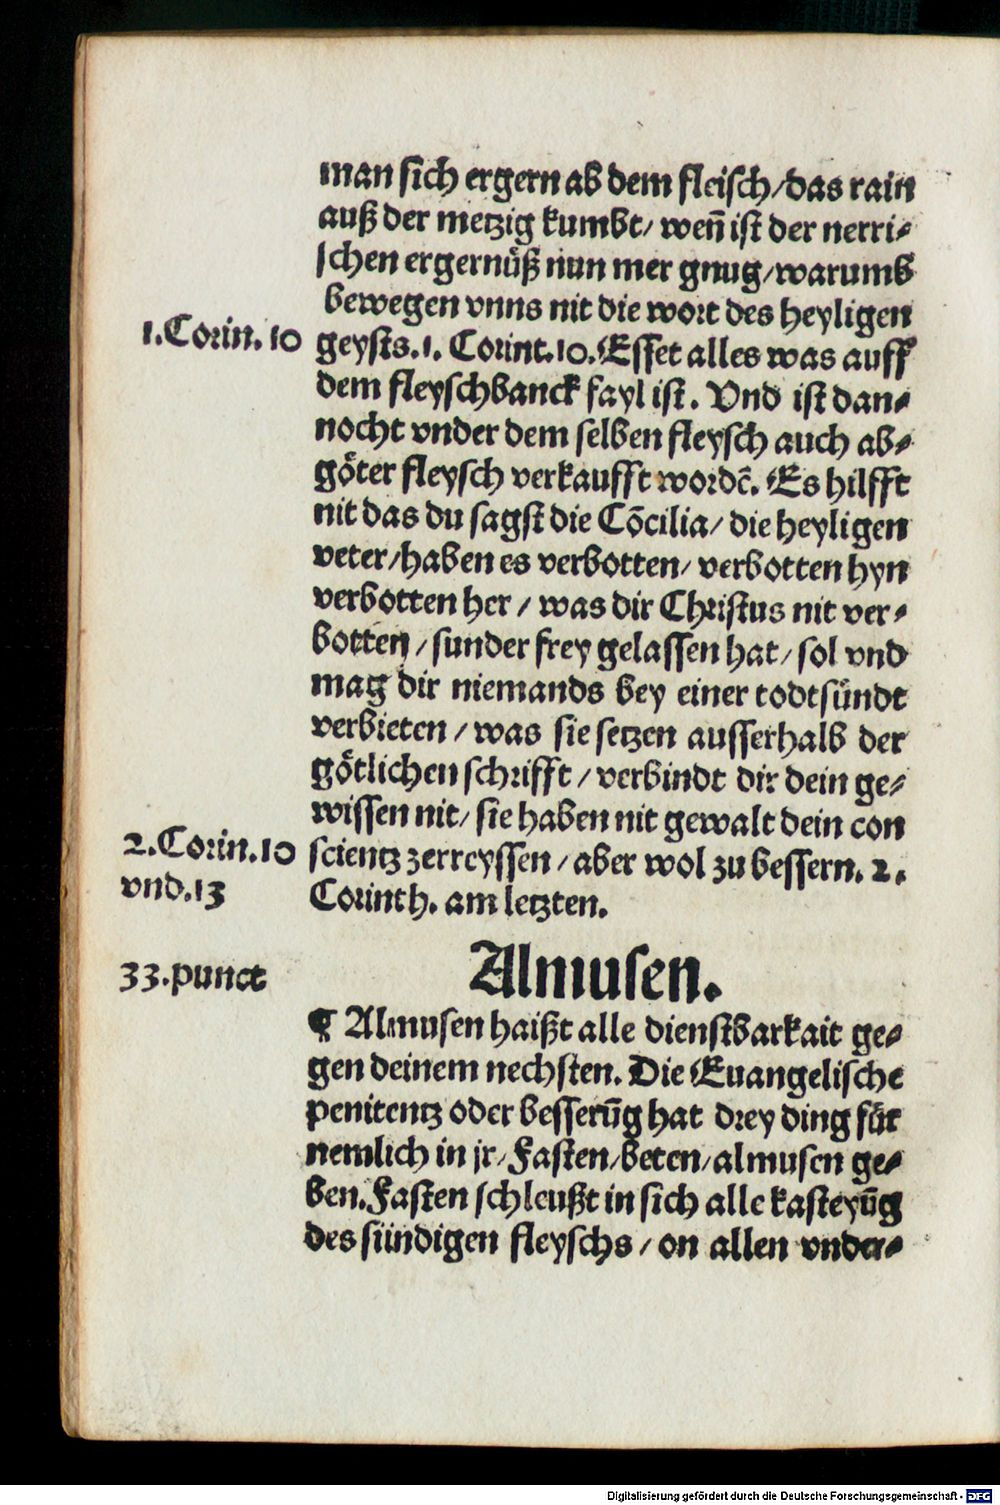 man sich ergern ab dem fleisch/das rain
auß der metzig kumbt/ weñ ist der nerri-
schen ergernüß nun mer gnug/warumb
bewegen vnns nit die wort des heyligen
1.Corin.10
geysts.1. Corint.10.Esset alles was auff
dem fleyschbanck fayl ist. Vnd ist dan-
nocht vnder dem selben fleysch auch ab-
göter fleysch verkaufft wordē. Es hilfft
nit das du sagst die Cōcilia/ die heyligen
veter/haben es verbotten/ verbotten hyn
verbotten her / was dir Christus nit ver-
botten / sunder frey gelassen hat/ sol vnd
mag dir niemands bey einer todtsündt
verbieten / was sie setzen ausserhalb der
götlichen schrifft / verbindt dir dein ge-
wissen nit/ sie haben nit gewalt dein con
2.Corin.10
scientz zerreyssen / aber wol zu bessern. 2.
vnd.13
Corinth. am letzten.
Almusen.
33.punct
¶ Almusen haißt alle dienstbarkait ge-
gen deinem nechsten. Die Euangelische
penitentz oder besserūg hat drey ding für
nemlich in jr/ Fasten/beten/almusen ge-
ben.Fasten schleußt in sich alle kasteyūg
des sündigen fleyschs / on allen vnder-
Digitalisierung gefördert durch die Deutsche Forschungsgemeinschaft - DFG